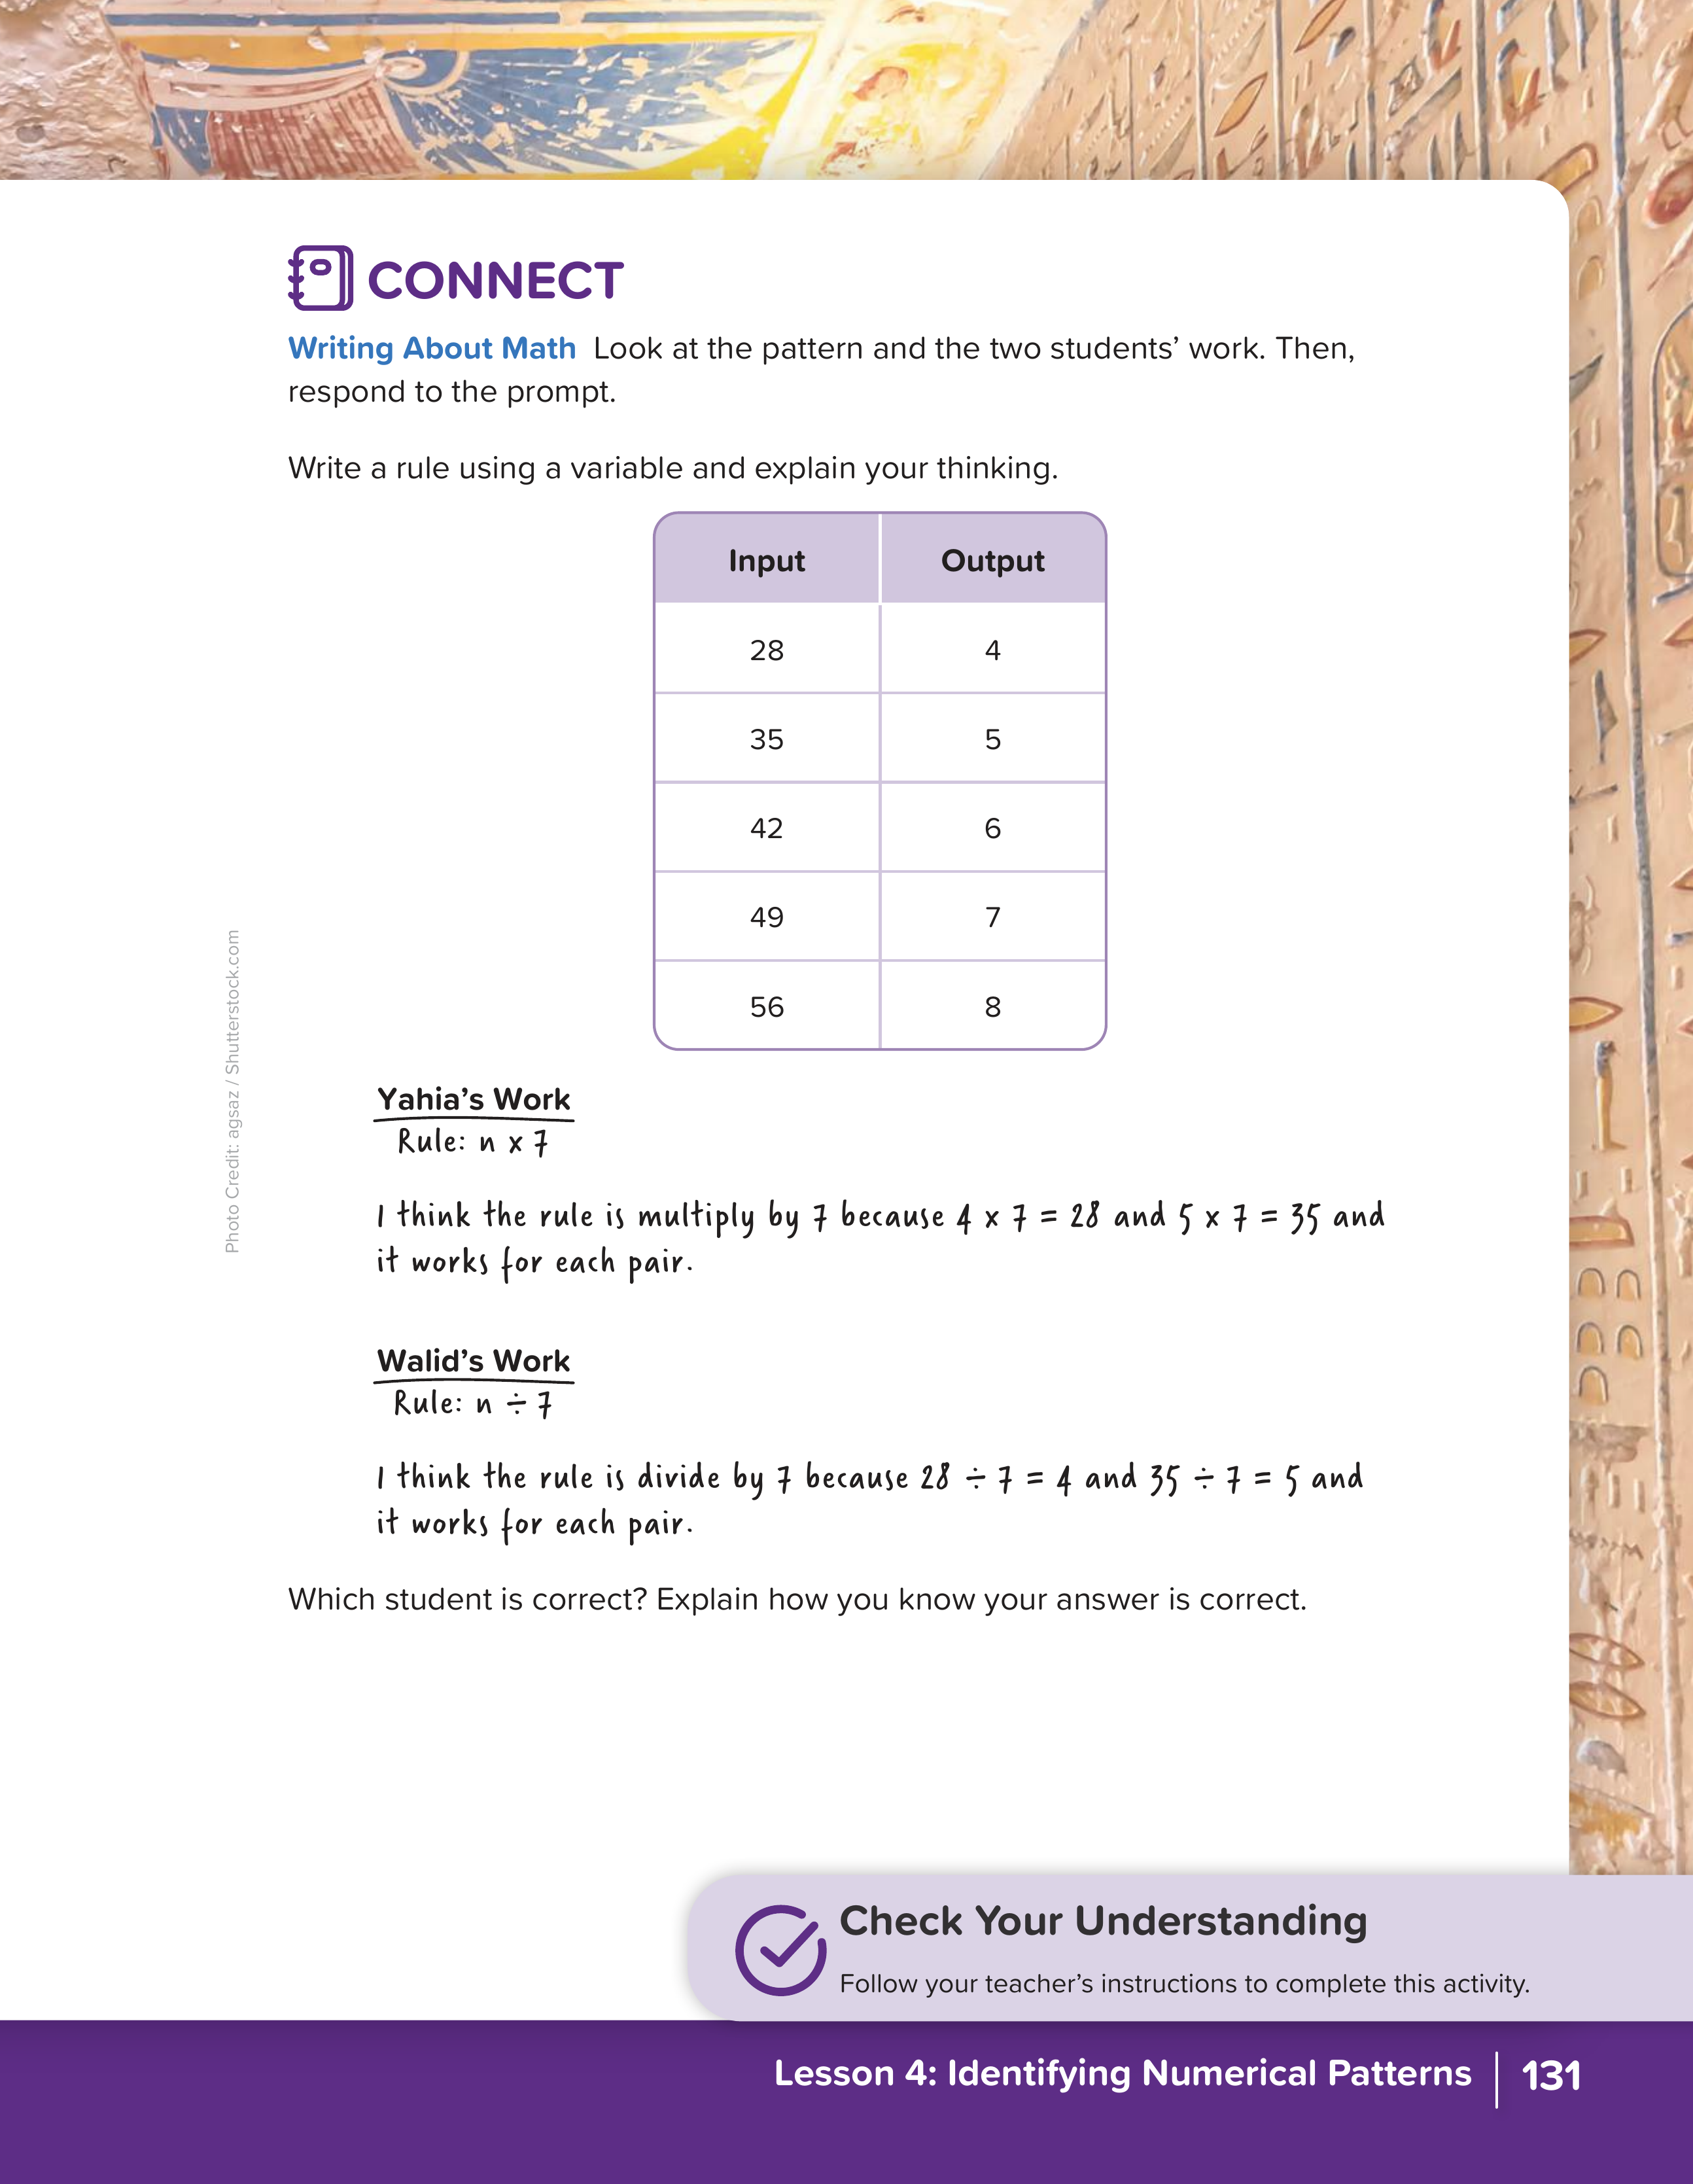 CONNECT
Writing About Math Look at the pattern and the two students’ work. Then,
respond to the prompt.
Write a rule using a variable and explain your thinking.
Input Output
28 4
35 5
42 6
49 7
56 8
Yahia’s Work
Rule: n x 7
I think the rule is multiply by 7 because 4 x 7 = 28 and 5 x 7 = 35 and
it works for each pair.
Walid’s Work
Rule: n ÷ 7
I think the rule is divide by 7 because 28 ÷ 7 = 4 and 35 ÷ 7 = 5 and
it works for each pair.
Which student is correct? Explain how you know your answer is correct.
Photo Credit: agsaz / Shutterstock.com
Check Your Understanding
Follow your teacher’s instructions to complete this activity.
Lesson 4: Identifying Numerical Patterns 131